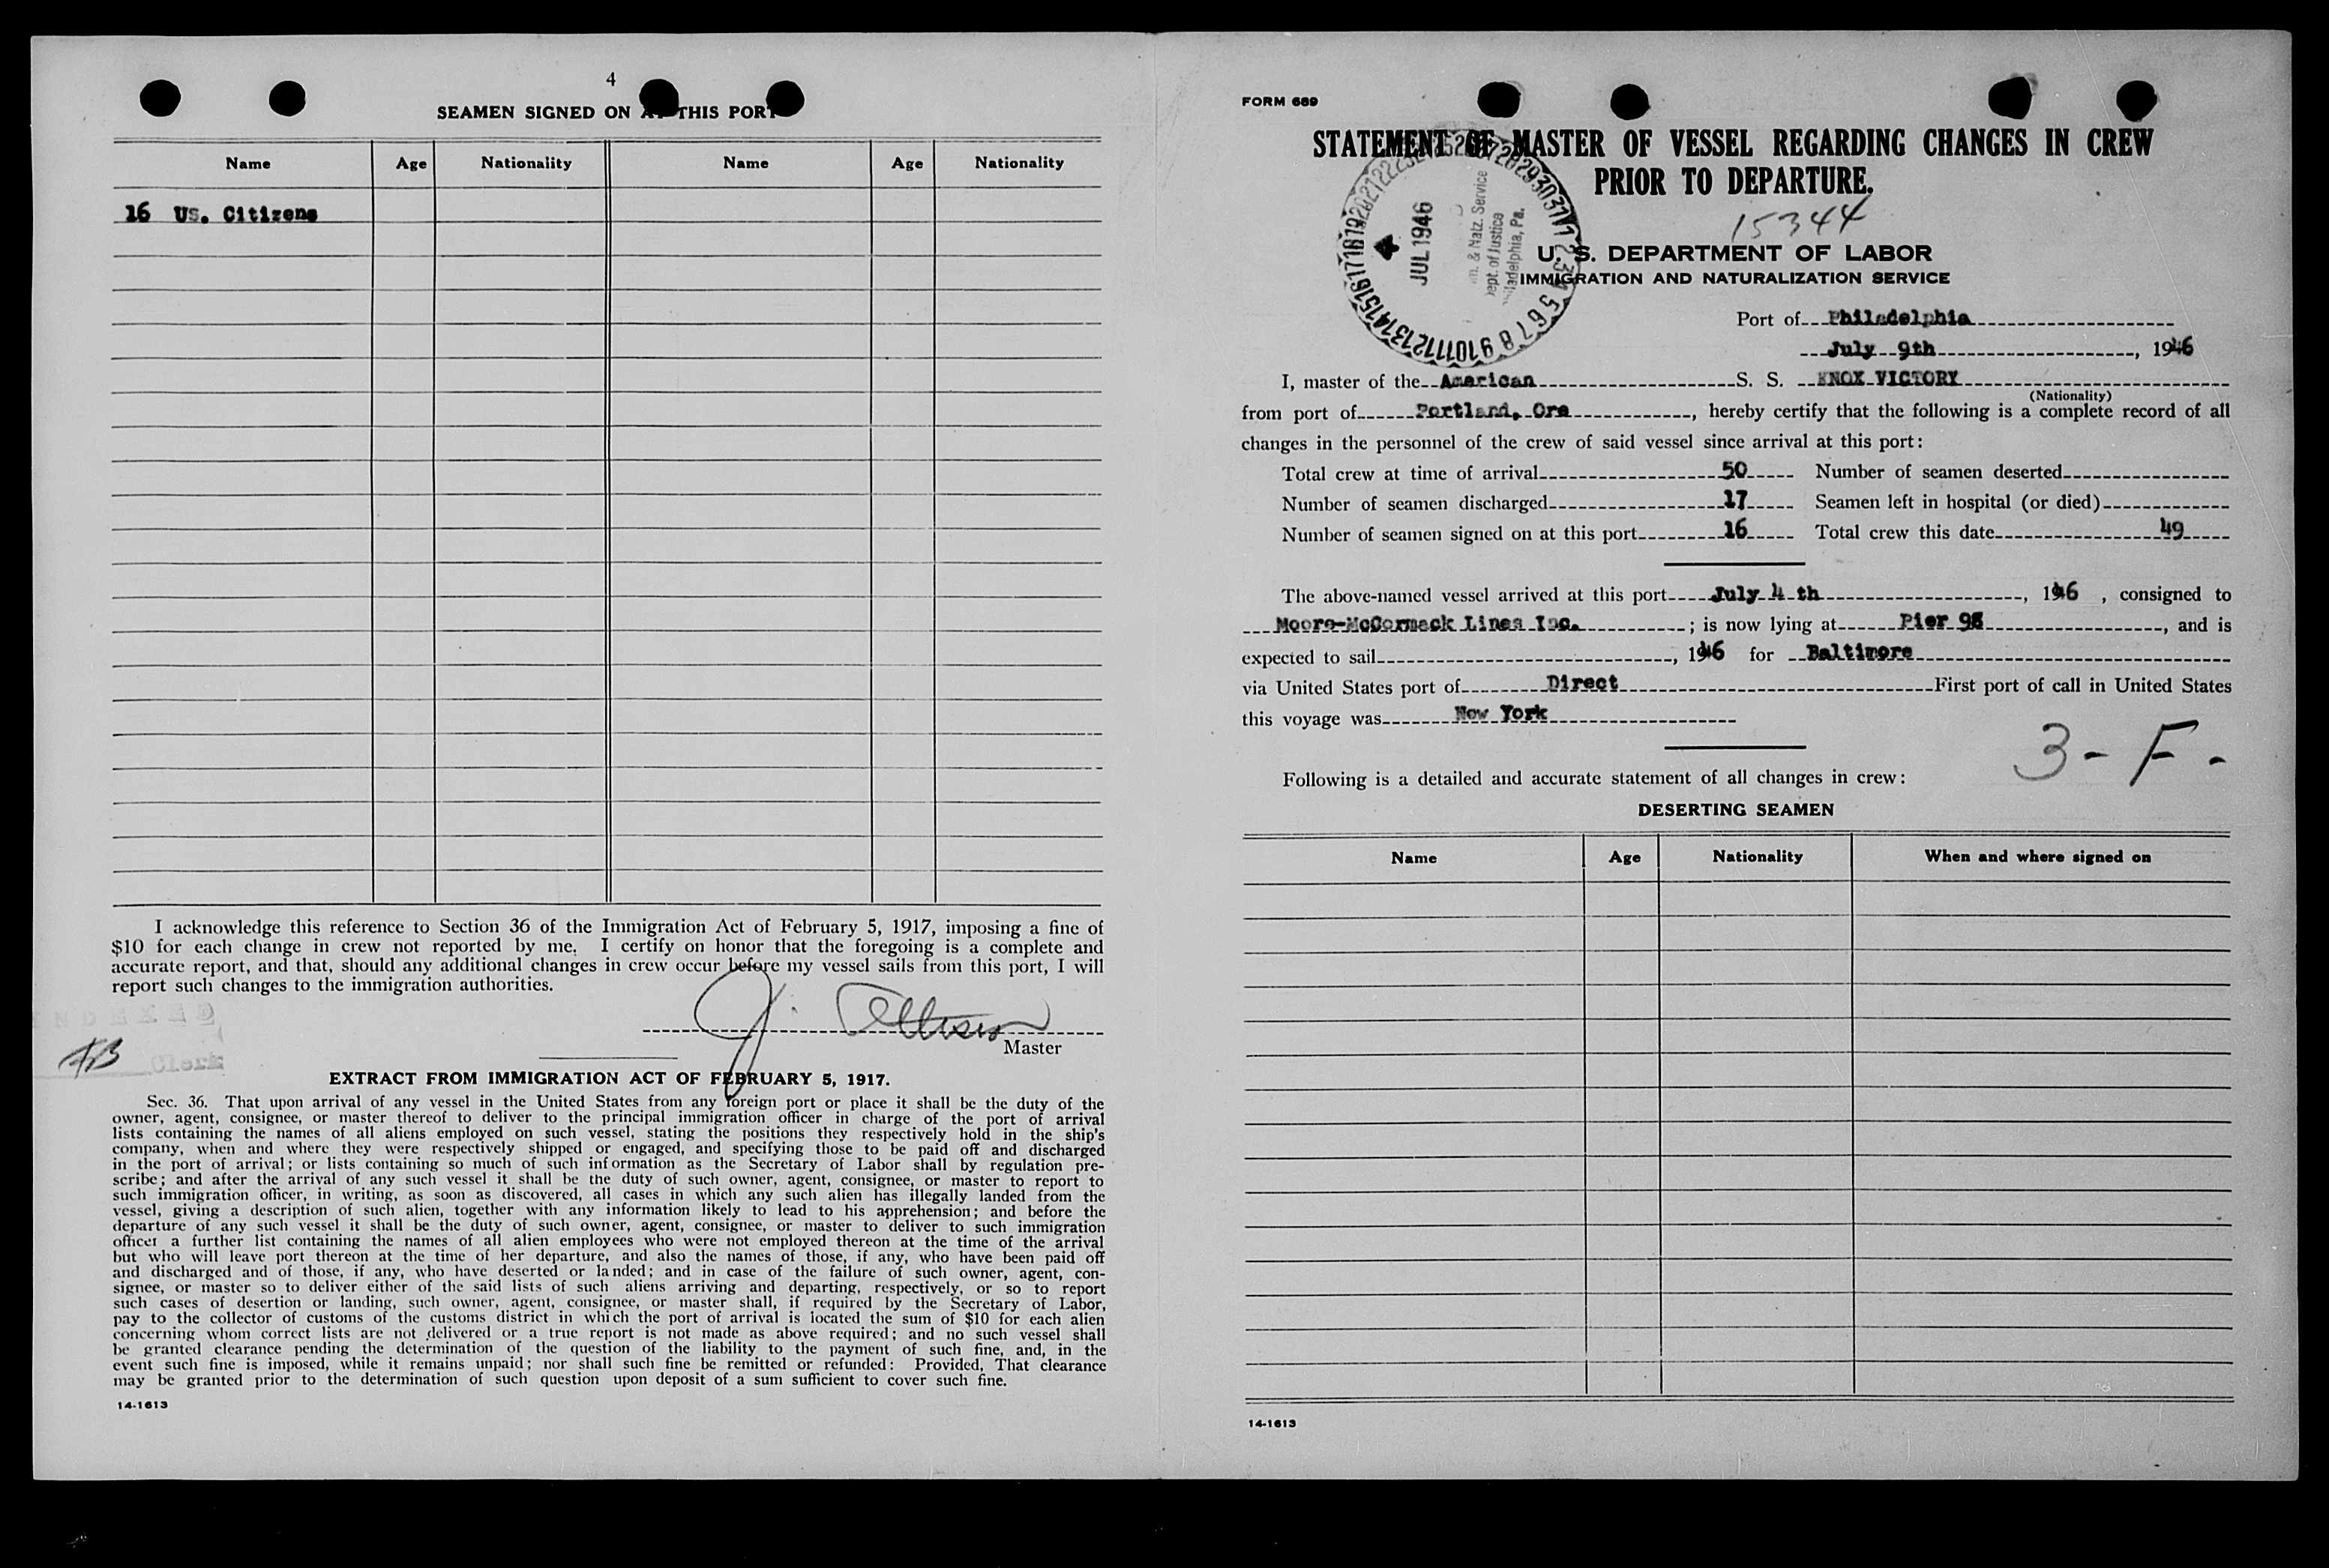 4
SEAMEN SIGNED ON AT THIS PORT
Name Age Nationality Name Age Nationality
16 US. Citizens
I acknowledge this reference to Section 36 of the Immigration Act of February 5, 1917, imposing a fine of
$10 for each change in crew not reported by me. I certify on honor that the foregoing is a complete and
accurate report, and that, should any additional changes in crew occur before my vessel sails from this port, I will
report such changes to the immigration authorities.
Master
EXTRACT FROM IMMIGRATION ACT OF FEBRUARY 5, 1917.
Sec. 36. That upon arrival of any vessel in the United States from any foreign port or place it shall be the duty of the
owner, agent, consignee, or master thereof to deliver to the principal immigration officer in charge of the port of arrival
lists containing the names of all aliens employed on such vessel, stating the positions they respectively hold in the ship's
company, when and where they were respectively shipped or engaged, and specifying those to be paid off and discharged
in the port of arrival; or lists containing so much of such information as the Secretary of Labor shall by regulation pre-
scribe; and after the arrival of any such vessel it shall be the duty of such owner, agent, consignee, or master to report to
such immigration officer, in writing, as soon as discovered, all cases in which any such alien has illegally landed from the
vessel, giving a description of such alien, together with any information likely to lead to his apprehension; and before the
departure of any such vessel it shall be the duty of such owner, agent, consignee, or master to deliver to such immigration
officer a further list containing the names of all alien employees who were not employed thereon at the time of the arrival
but who will leave port thereon at the time of her departure, and also the names of those, if any, who have been paid off
and discharged and of those, if any, who have deserted or landed; and in case of the failure of such owner, agent, con-
signee, or master so to deliver either of the said lists of such aliens arriving and departing, respectively, or so to report
such cases of desertion or landing, such owner, agent, consignee, or master shall, if required by the Secretary of Labor,
pay to the collector of customs of the customs district in which the port of arrival is located the sum of $10 for each alien
concerning whom correct lists are not delivered or a true report is not made as above required; and no such vessel shall
be granted clearance pending the determination of the question of the liability to the payment of such fine, and, in the
event such fine is imposed, while it remains unpaid; nor shall such fine be remitted or refunded: Provided, That clearance
may be granted prior to the determination of such question upon deposit of a sum sufficient to cover such fine.
14-1613
FORM 689
STATEMENT OF MASTER OF VESSEL REGARDING CHANGES IN CREW
PRIOR TO DEPARTURE.
15344
JUL 1946
U. S. DEPARTMENT OF LABOR
IMMIGRATION AND NATURALIZATION SERVICE
Port of Philadelphia
July 9th, 1946
I, master of the American S. S. KNOX VICTORY
(Nationality)
from port of Portland, Ore, hereby certify that the following is a complete record of all
changes in the personnel of the crew of said vessel since arrival at this port:
Total crew at time of arrival 50 Number of seamen deserted
Number of seamen discharged 17 Seamen left in hospital (or died)
Number of seamen signed on at this port 16 Total crew this date 49
The above-named vessel arrived at this port July 4 th, 1946, consigned to
Moore-McCormack Lines Inc.; is now lying at Pier 98, and is
expected to sail, 1946 for Baltimore
via United States port of Direct First port of call in United States
this voyage was New York
3 - F -
Following is a detailed and accurate statement of all changes in crew:
DESERTING SEAMEN
Name Age Nationality When and where signed on
14-1613